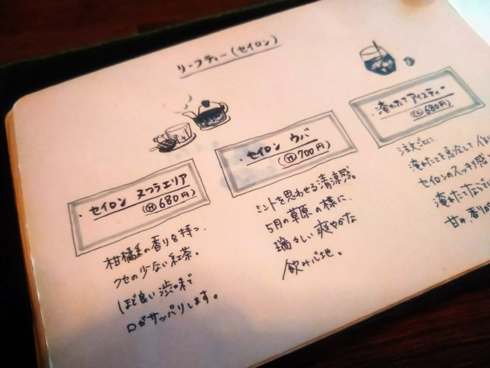 リーフティー(セイロン)
・セイロン ヌワラエリア
Ⓗ680円
柑橘系の香りを持つ
クセの少ない紅茶。
ほど良い渋味で
口がサッパリします。
・セイロン ウバ
Ⓗ700円
ミントを思わせる清涼感。
5月の草原の様に
瑞々しい爽やかな
飲み心地。
淹れたて アイスティー
680円
注文ごとに
セイロンのスッキリ感
淹れたてならで
甘い香り